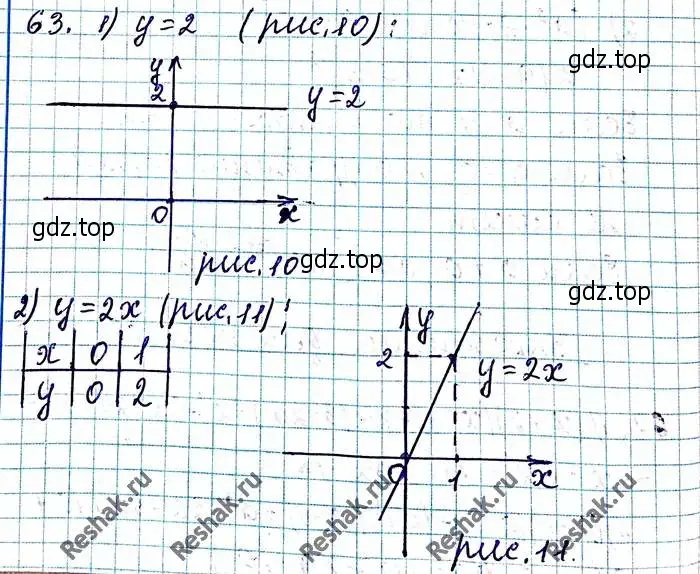 63. 1) y=2 (рис.10):
gdz.top
y
2
y=2
0
x
gdz.top
рис.10
gdz.top
2) y=2x (рис.11);
x 0 1
y 0 2
y
2
y=2x
0
1
x
рис.11.
Reshak.ru
Reshak.ru
Reshak.ru
Reshak.ru
Reshak.ru